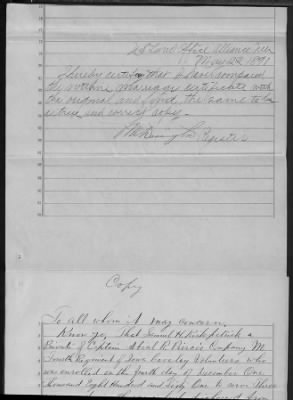 U S Land Office Alliance Neb
May 22 1891
I hereby certify that I have compared
the within marriage certificate with
the original and find the same to be
a true and correct copy.
Register
Copy
To all whom it may concern,
Know ye, That Samuel H. Kirkpatrick a
Private of Captain R. Company M
Fourth Regiment of Iowa Cavalry Volunteers who
was enrolled on the fourth day of December One
thousand Eight Hundred and Sixty One to serve three